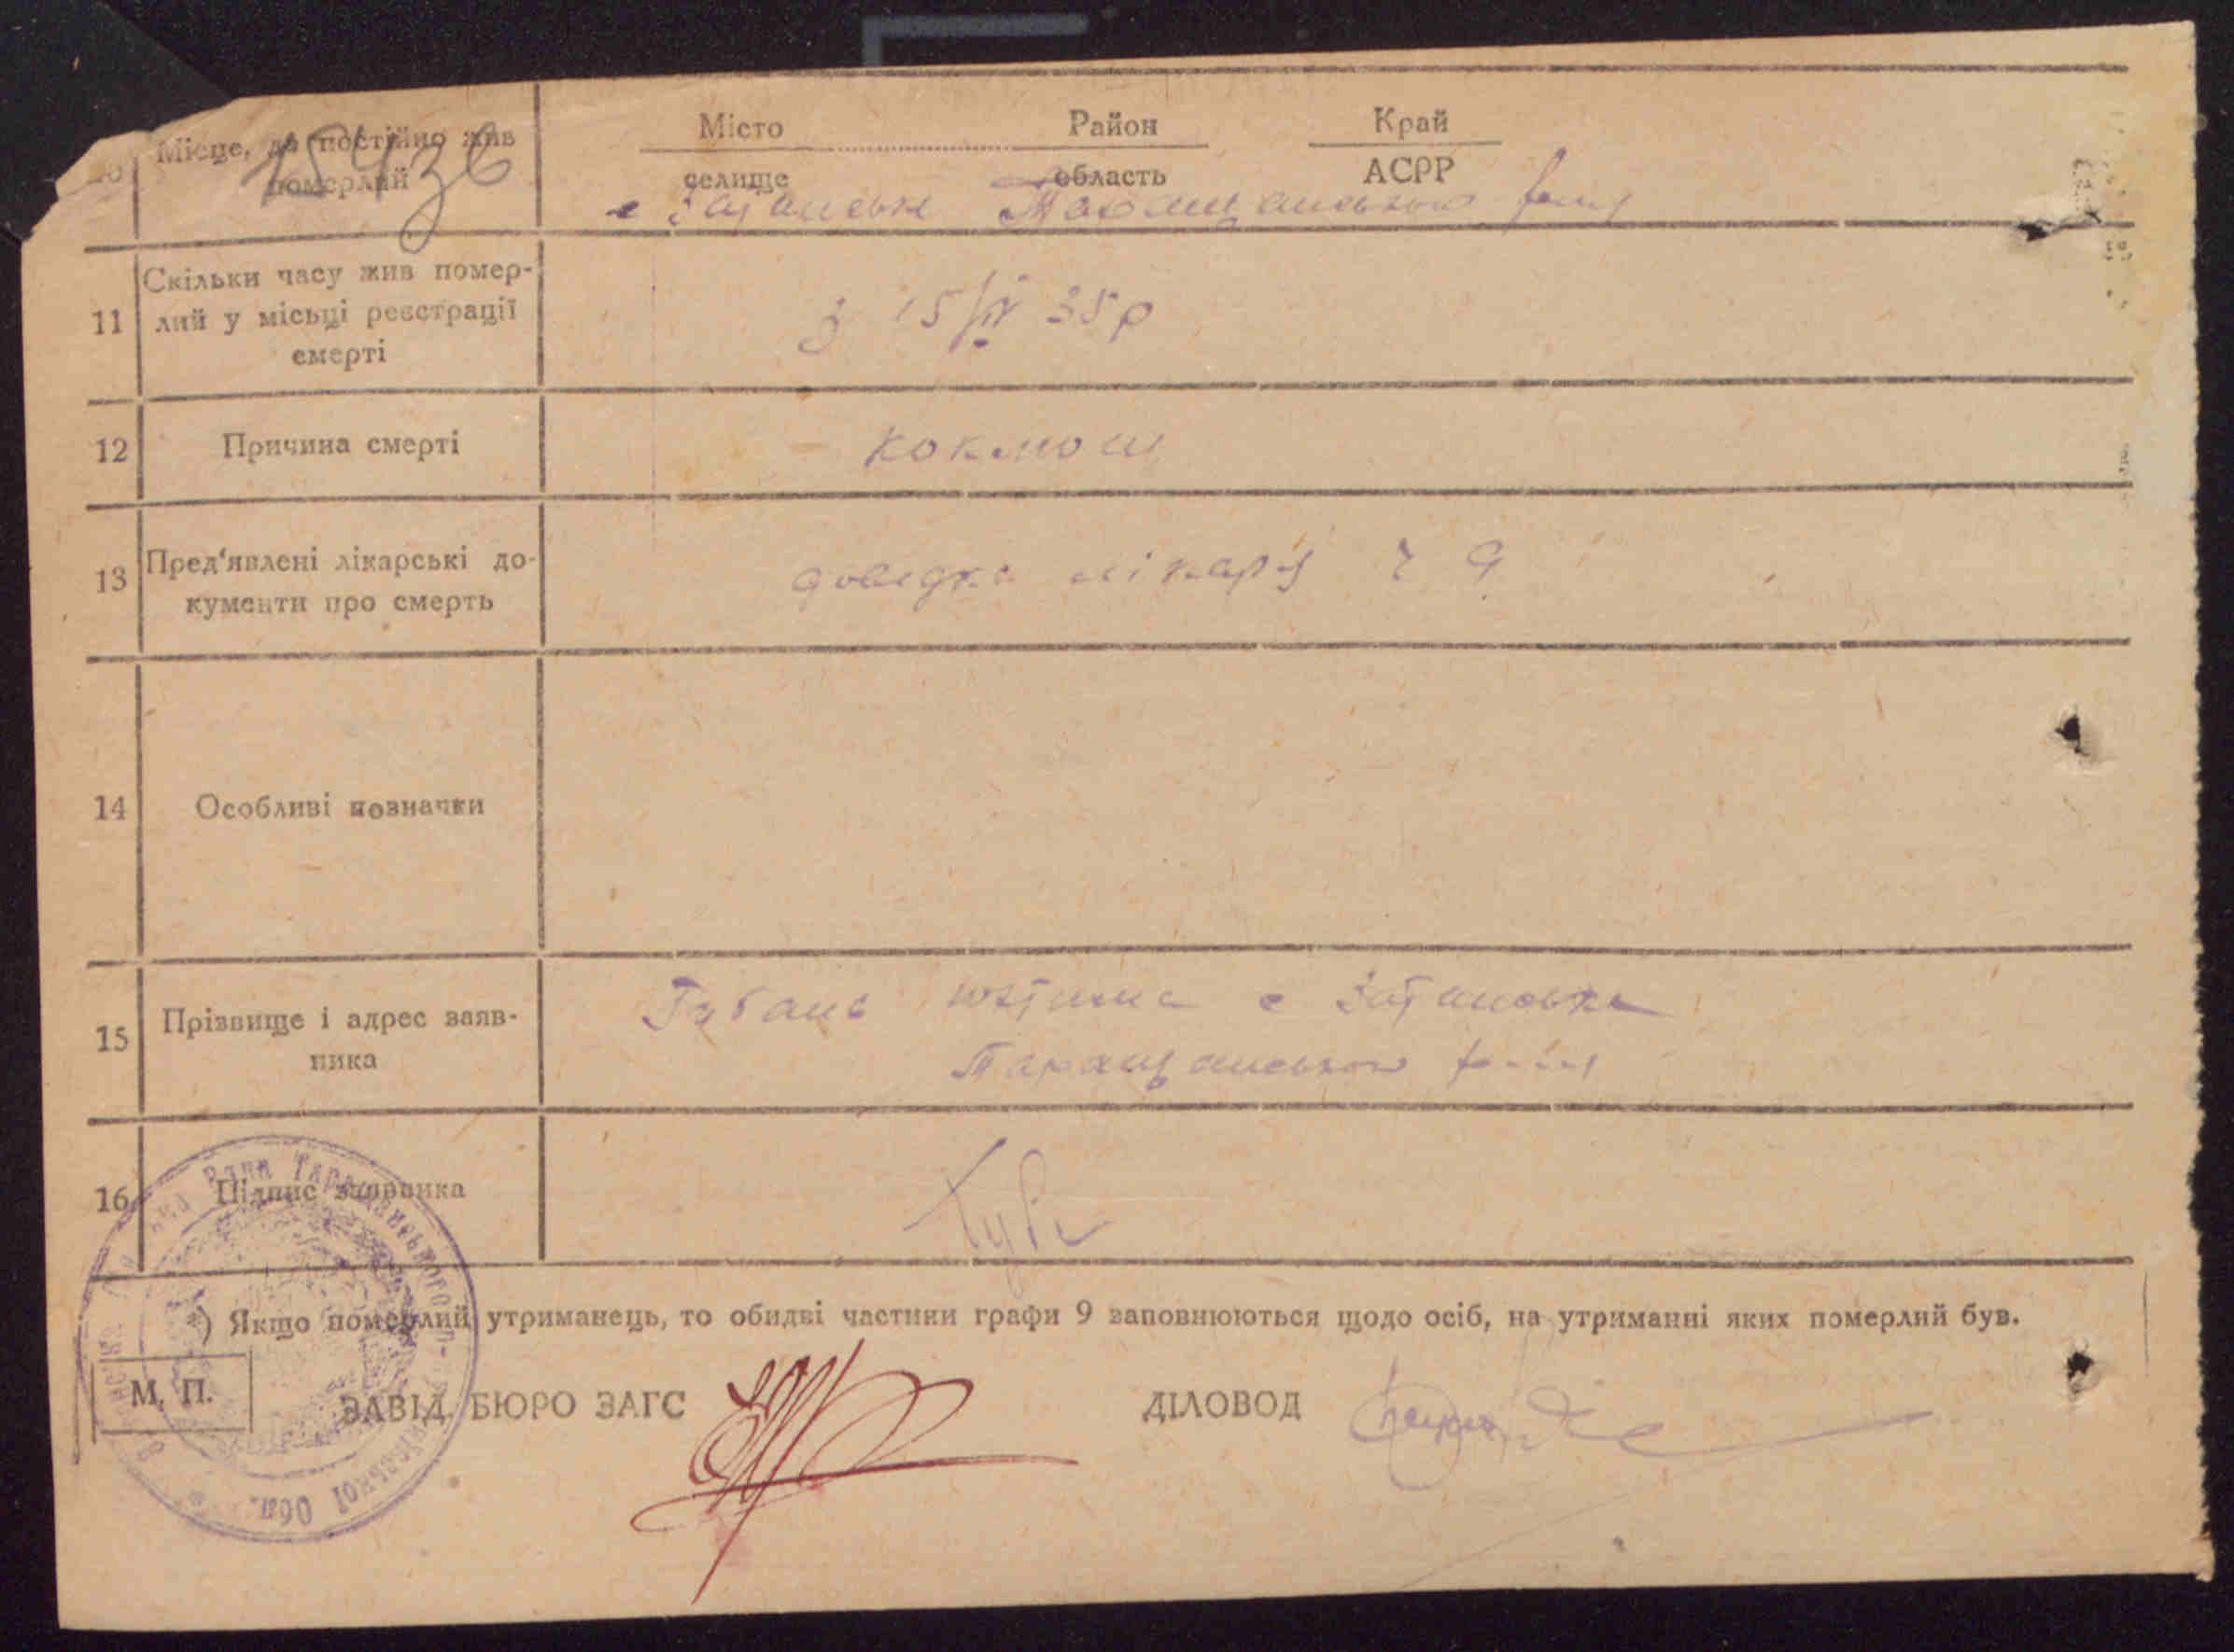 Місце, де постійно жив померлий
15436
Місто Район Край
селище область АСРР
с Зітанське Таращанського
11 Скільки часу жив помер-
лий у місьці реєстрації
смерті
з 15/IV 35 р
12 Причина смерті
коклюш
13 Пред'явлені лікарські до-
кументи про смерть
довідка лікаря 9
14 Особливі позначки
15 Прізвище і адрес заяв-
ника
Губань с
Таращанського
16 Підпис заявника
*) Якщо померлий утриманець, то обидві частини графи 9 заповнюються щодо осіб, на утриманні яких померлий був.
М. П.
ЗАВІД. БЮРО ЗАГС ДІЛОВОД
Ради Таращанського
Обл.